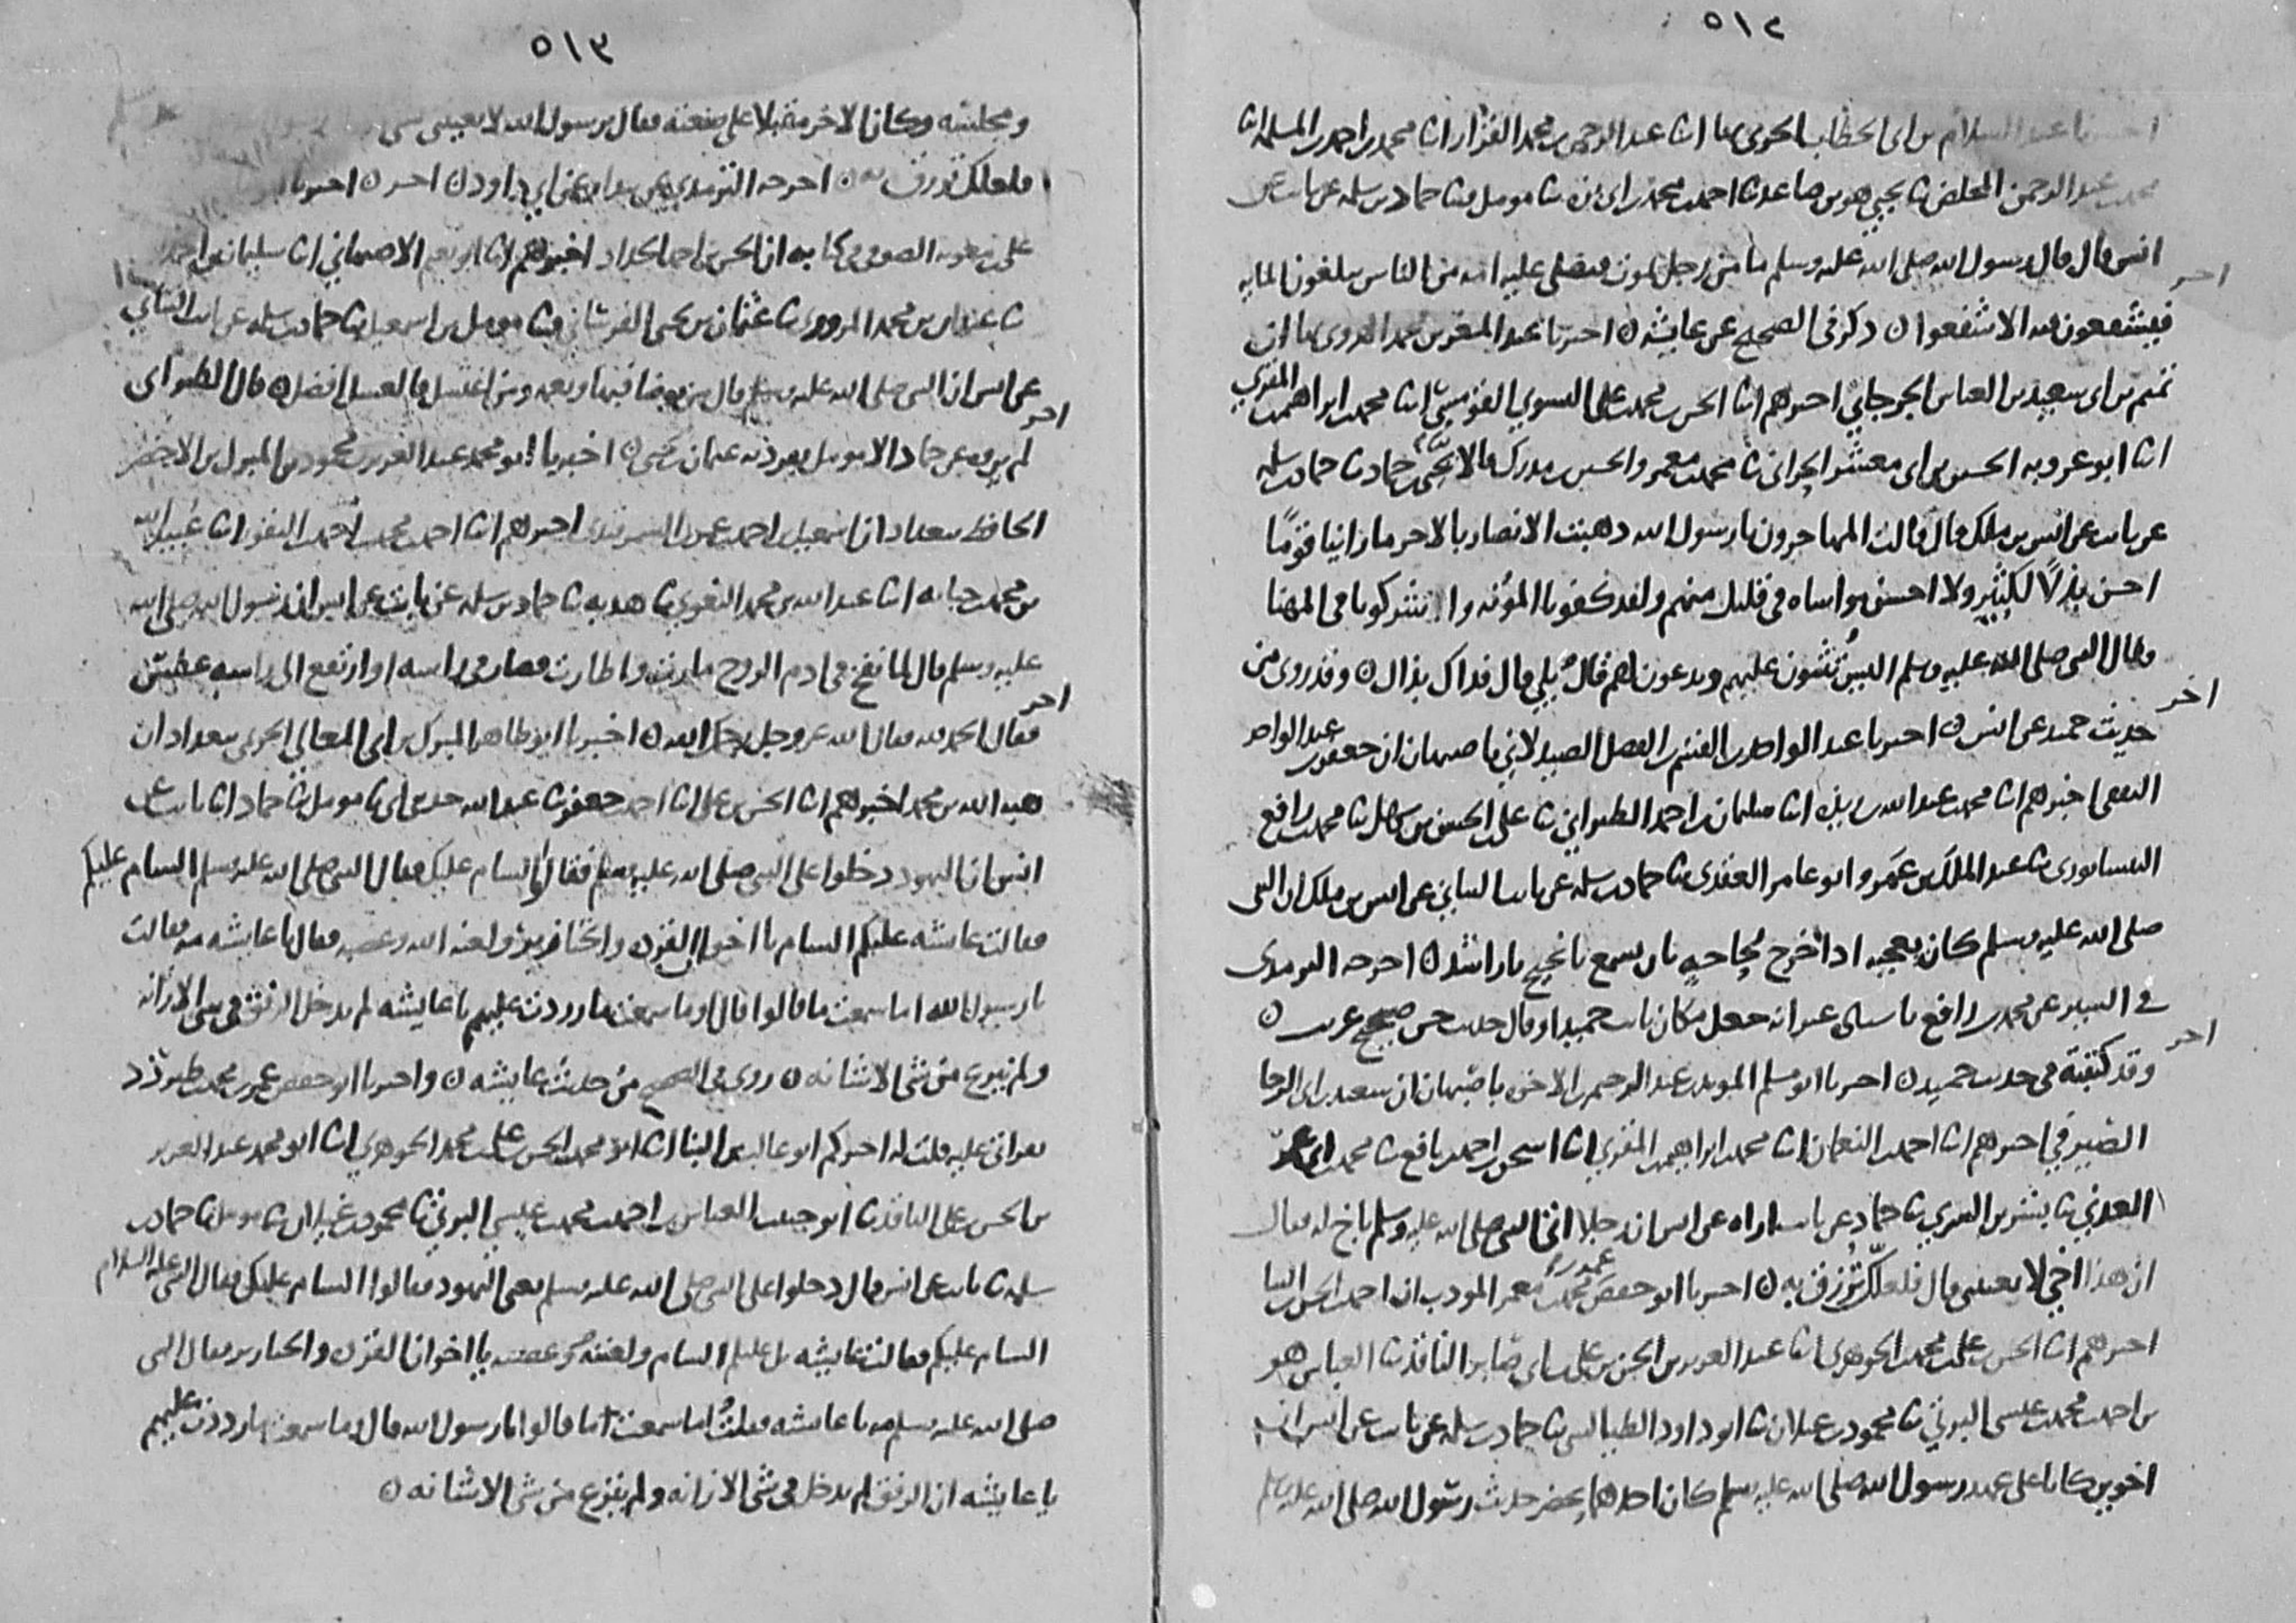 ٥١٢
عبد السلام بن ابى الخطاب الحربى بها انا عبد الرحمن بن محمد القزاز انا محمد بن احمد بن المسلمة انا
محمد بن عبد الرحمن المخلص نا يحيى هو بن صاعد نا احمد بن محمد بن ابى بزه نا مومل نا حماد بن سلمه عن ثابت عن
انس قال قال رسول الله صلى الله عليه وسلم ما من رجل يموت فيصلى عليه امه من الناس يبلغون المايه
اخر
فيشفعون فيه الا شفعوا ٥ ذكر فى الصحيح عن عايشه ٥ اخبرنا عبد المعز بن محمد الهروى بها ان
تميم بن ابى سعيد بن العباس الجرجاني اخبرهم انا محمد بن على انا محمد بن ابراهيم بن المقري
انا ابو عروبه الحسين بن ابى معشر الحرانى نا محمد بن معمر والحسين بن مدرك قالا نا يحيى بن حماد نا حماد بن سلمه
عن ثابت عن انس بن ملك قال قالت المهاجرون يا رسول الله ذهبت الانصار بالاجر ما راينا قومًا
احسن بذلاً لكثير ولا احسن مواساه فى قليل منهم ولقد كفونا المؤنه واشركونا فى المهنا
فقال النبى صلى الله عليه وسلم اليس تثنون عليهم وتدعون لهم قالوا بلى قال فذاك بذاك ٥ وقد روى من
اخر
حديث حميد عن انس ٥ اخبرنا عبد الواحد بن القسم بن الفضل الصيدلاني باصبهان ان جعفر بن عبد الواحد
الثقفى اخبرهم انا محمد بن عبد الله بن ريذه انا سليمان بن احمد الطبراني نا على بن الحسين بن نا محمد بن رافع
النيسابورى نا عبد الملك بن عمرو ابو عامر العقدى نا حماد بن سلمه عن ثابت البناني عن انس بن ملك ان النبى
صلى الله عليه وسلم كان يعجبه اذا خرج لحاجه ان يسمع يا نجيح يا راشد ٥ اخرجه الترمذى
فى السير عن محمد بن رافع باسناده غير انه جعل مكان ثابت حميدا وقال حديث حسن صحيح غريب ٥
اخر
وقد كتبته فى حديث حميد ٥ اخبرنا ابو مسلم المويد بن عبد الرحيم بن الاخوه باصبهان ان سعيد بن ابى الرجا
الصيرفي اخبرهم انا احمد بن النعمان انا محمد بن ابراهيم بن المقري انا اسحق بن احمد بن نافع نا محمد بن ابى عمر
العدني نا بشر بن السري نا حماد عن ثابت اراه عن انس ان رجلا اتى النبى صلى الله عليه وسلم باخ له فقال
ان هذا اخي لا يعيننى قال فلعلّك تُرزق به ٥ اخبرنا ابو حفص عمر بن محمد بن معمر المودب ان احمد بن الحسن بن البنا
اخبرهم انا الحسن بن على بن محمد الجوهرى انا عبد العزيز بن الحسن بن على بن ابى صابر الناقد نا العباس هو
بن احمد بن محمد بن عيسى البرتي نا محمود بن غيلان نا ابو داود الطيالسى نا حماد بن سلمه عن ثابت عن انس ان
اخوين كانا على عهد رسول الله صلى الله عليه وسلم كان احدهما يحضر حديث رسول الله صلى الله عليه وسلم
٥١٣
ومجلسه وكان الاخر مقبلا على صنعته فقال يرسول الله لا يعيننى بشى
فلعلك ترزق به ٥ اخرجه الترمذى عن بندار عن ابي داود ٥ اخر ٥ اخبرنا
على بن الصوفى فى كتابه ان الحسن بن احمد الحداد اخبرهم انا ابو نعيم الاصبهاني انا سليمان بن احمد
نا بن محمد المروزى نا عثمان بن يحيى القرقسانى نا مومل بن اسمعيل نا حماد بن سلمه عن ثابت البناني
عن انس ان النبى صلى الله عليه وسلم قال من توضا فبها ونعمه ومن اغتسل فالغسل افضل ٥ قال الطبرانى
اخر
لم يروه عن حماد الا مومل تفرد به عثمان بن يحيى ٥ اخبرنا ابو محمد عبد العزيز بن محمود بن المبرك بن الاخضر
الحافظ ببغداد ان اسمعيل بن احمد بن عمر السمرقندى اخبرهم انا احمد بن محمد بن احمد بن النقور انا عُبيد الله
بن محمد بن حبابه انا عبد الله بن محمد البغوي نا هدبه نا حماد بن سلمه عن ثابت عن انس ان رسول الله صلى الله
عليه وسلم قال لما نفخ فى ادم الروح فصار فى راسه او ارتفع الى راسه عطس
اخر
فقال الحمد لله فقال الله عز وجل يرحمك الله ٥ اخبرنا ابو طاهر المبرك بن ابى المعالي الحريمى ببغداد ان
هبه الله بن محمد اخبرهم انا الحسن بن على انا احمد بن جعفر نا عبد الله حدثنى ابى نا مومل نا حماد نا ثابت عن
انس ان اليهود دخلوا على النبى صلى الله عليه وسلم فقالوا السام عليك فقال النبى صلى الله عليه وسلم السام عليكم
فقالت عايشه عليكم السام يا اخوان القرده والخنازير ولعنه الله وغضبه فقال يا عايشه مه فقالت
يا رسول الله اما سمعت ما قالوا قال او ما سمعت ما رددت عليهم يا عايشه لم يدخل الرفق فى شى الا زانه
ولم ينزع من شى الا شانه ٥ روى فى الصحيح من حديث عايشه ٥ واخبرنا ابو حفص عمر بن محمد بن طبرزد
بقراتى عليه قلت له اخبركم ابو غالب بن البنا انا ابو محمد الحسن بن على بن محمد الجوهري انا ابو محمد عبد العزيز
بن الحسن بن على الناقد نا ابو حبيب العباس بن احمد بن محمد بن عيسى البرتي نا محمود بن غيلان نا مومل نا حماد بن
سلمه نا ثابت عن انس قال دخلوا على النبى صلى الله عليه وسلم يعنى اليهود فقالوا السام عليك فقال النبى عليه السلام
السام عليكم فقالت عايشه بل عليكم السام ولعنه وغضبه يا اخوان القرده والخنازير فقال النبى
صلى الله عليه وسلم مه يا عايشه فقلتُ اما سمعت ما قالوا يا رسول الله قال او ما سمعت ما رددت عليهم
يا عايشه ان الرفق لم يدخل فى شى الا زانه ولم ينزع من شى الا شانه ٥